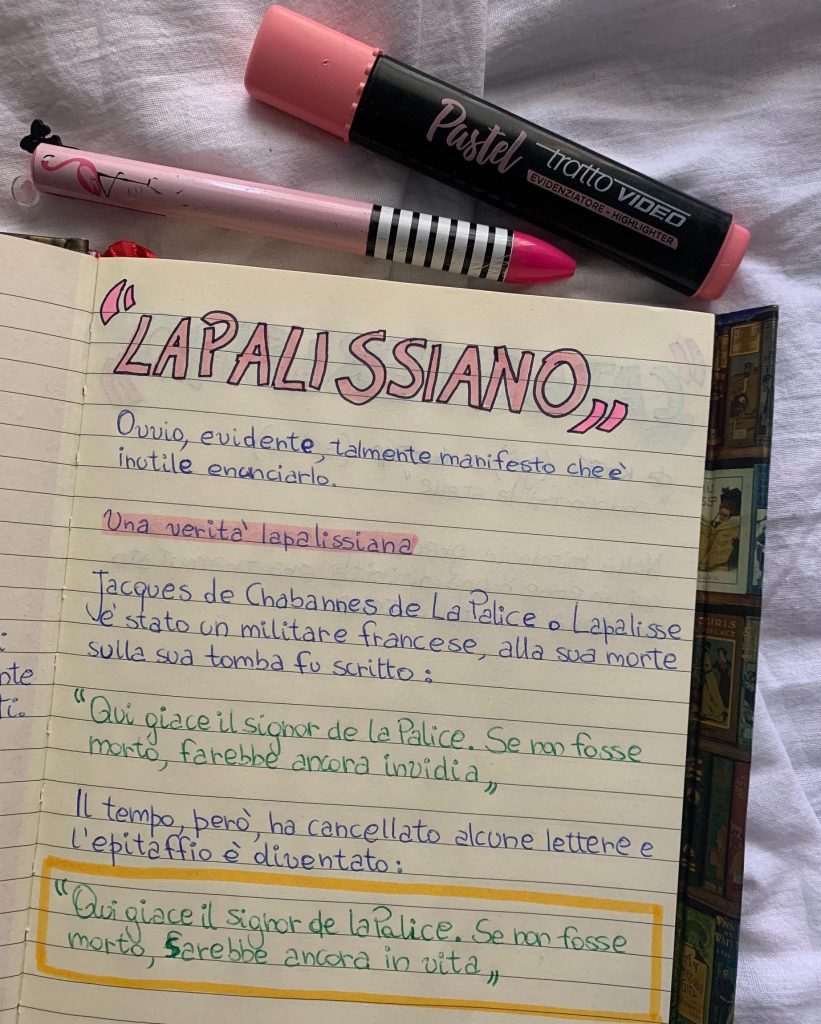 Pastel tratto VIDEO
EVIDENZIATORE - HIGHLIGHTER
"LAPALISSIANO„
Ovvio, evidente, talmente manifesto che è
inutile enunciarlo.
Una verità lapalissiana
Jacques de Chabannes de La Palice o Lapalisse
è stato un militare francese, alla sua morte
sulla sua tomba fu scritto:
"Qui giace il signor de la Palice. Se non fosse
morto, farebbe ancora invidia„
Il tempo, però, ha cancellato alcune lettere e
l'epitaffio è diventato:
"Qui giace il signor de la Palice. Se non fosse
morto, sarebbe ancora in vita„
ti.